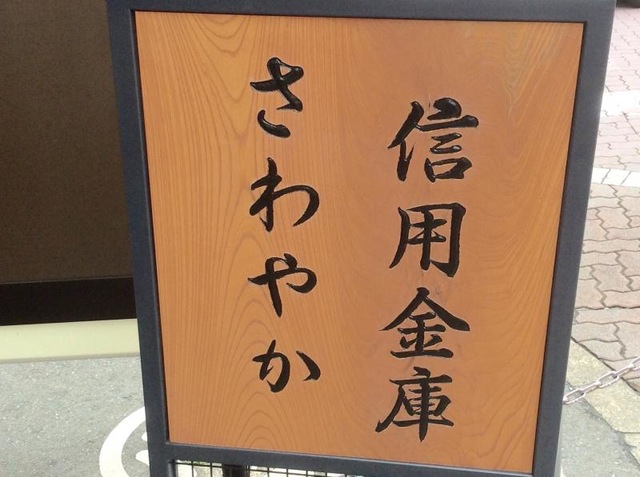 信用金庫
さわやか